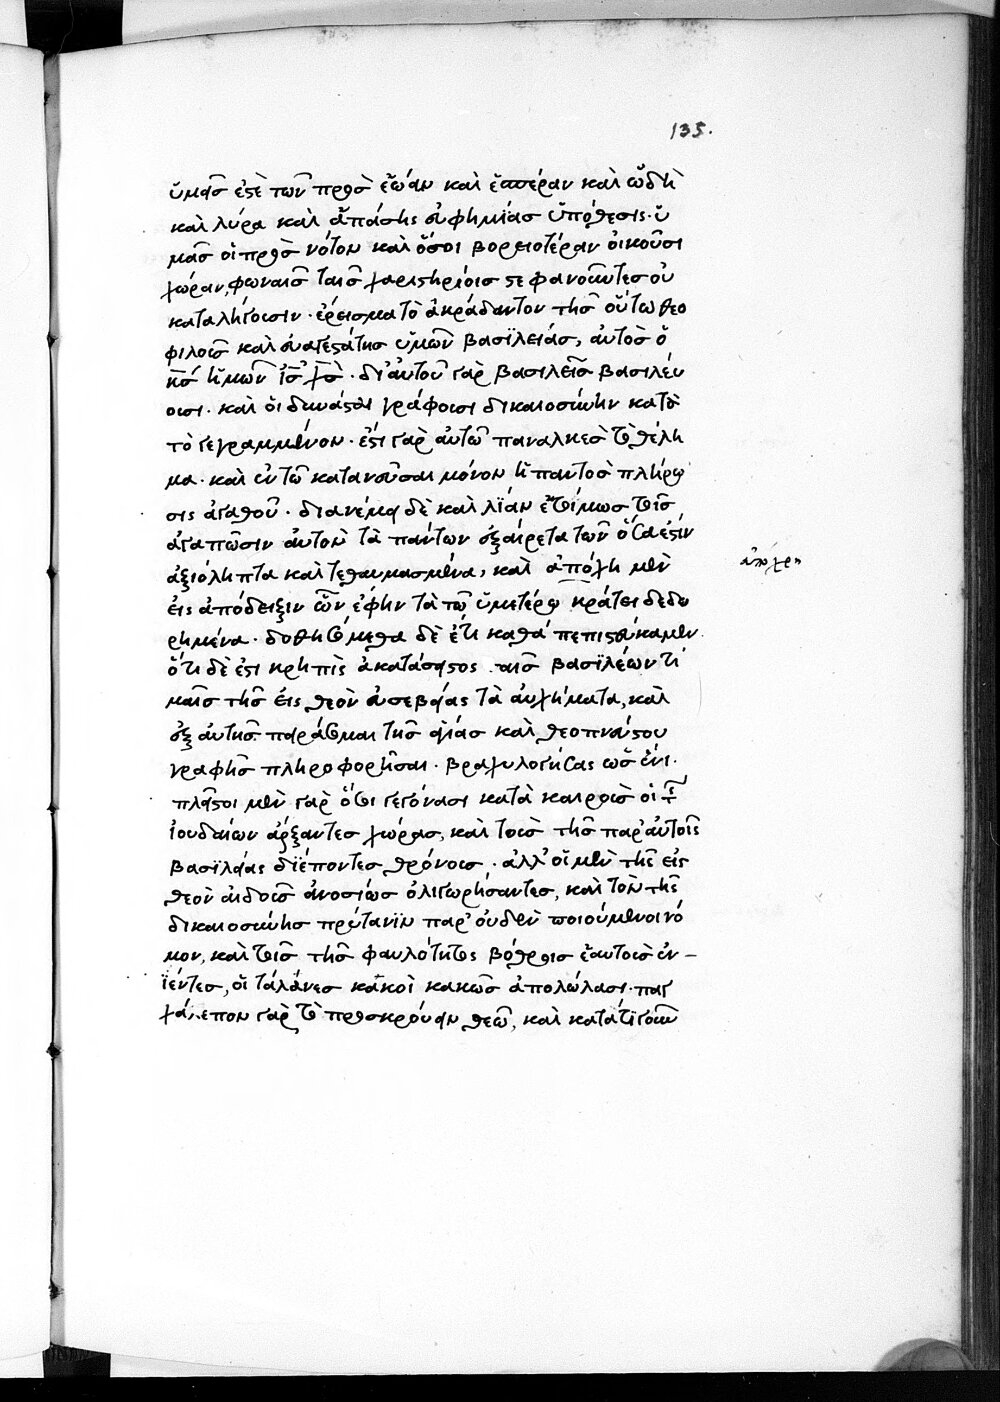 135.
ὑμᾶς ἐστὲ τῶν πρὸς ἑῴαν καὶ ἑσπέραν καὶ ᾠδὴ
καὶ λύρα καὶ ἁπάσης εὐφημίας ὑπόθεσις· ὑ
μᾶς οἱ πρὸς νότον καὶ ὅσοι βορειοτέραν οἰκοῦσι
χώραν, φωναῖς ταῖς χαριστηρίοις στεφανοῦντες οὐ
καταλήγουσιν· ἔρεισμα τὸ ἀκράδαντον τῆς οὕτω θεο
φιλοῦς καὶ εὐαγεστάτης ὑμῶν βασιλείας, αὐτὸς ὁ
κ̅ς̅ ἡμῶν ι̅ς̅ χ̅ς̅· δι' αὐτοῦ γὰρ βασιλεῖς βασιλεύ
ουσι· καὶ οἱ δυνάσται γράφουσι δικαιοσύνην κατὰ
τὸ γεγραμμένον· ἔστι γὰρ αὐτῶ παναλκὲς τὸ θέλη
μα· καὶ ἐν τῶ κατανεῦσαι μόνον ἡ παντὸς πλήρω
σις ἀγαθοῦ· διανέμει δὲ καὶ λίαν ἑτοίμως τοῖς
ἀγαπῶσιν αὐτὸν τὰ πάντων ἐξαίρετα τῶν ὅσα ἐστὶν
ἀξιόληπτα καὶ τεθαυμασμένα, καὶ ἀπόχη μὲν
εἰς ἀπόδειξιν ὧν ἔφην τὰ τῶ ὑμετέρω κράτει δεδω
ρημένα· δεθησόμεθα δὲ ἔτι καθά πεπιστεύκαμεν
ὅτι δέ ἐστι κρηπὶς ἀκατάσειστος ταῖς βασιλέων τι
μαῖς τῆς εἰς θεὸν εὐσεβείας τὰ αὐχήματα, καὶ
ἐξ αὐτῆς πειράσομαι τῆς ἁγίας καὶ θεοπνεύστου
γραφῆς πληροφορῆσαι· βραχυλογήσας ὡς ἔνι·
πλεῖστοι μὲν γὰρ ὅσοι γεγόνασι κατὰ καιροὺς οἱ τ
ἰουδαίων ἄρξαντες χώρας, καὶ τοὺς τῆς παρ' αὐτοῖς
βασιλείας διέποντες θρόνους· ἀλλ' οἱ μὲν τῆς εἰς
θεὸν αἰδοῦς ἀνοσίως ὀλιγωρήσαντες, καὶ τὸν τῆς
δικαιοσύνης πρύτανιν παρ' οὐδὲν ποιούμενοι νό
μον, καὶ τοῖς τῆς φαυλότητος βόθροις ἑαυτοὺς ἐν-
ϊέντες, οἱ τάλανες κακοὶ κακῶς ἀπολώλασι· παγ
χάλεπον γὰρ τὸ προσκρούειν θεῶ, καὶ κατόπιν
ἀπόχρη